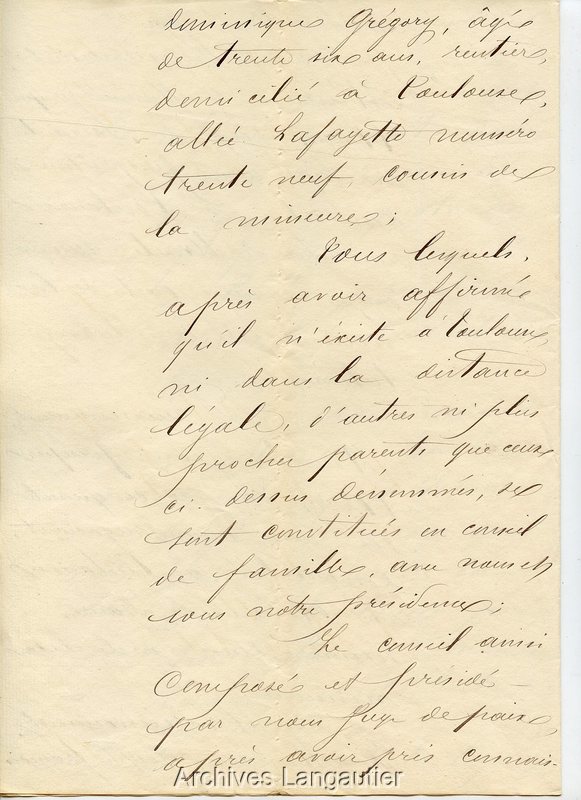 Dominique Grégory, âgé
de trente six ans, rentier,
domicilié à Toulouse,
allée Lafayette numéro
trente neuf, cousin de
la mineure;
Tous lesquels,
après avoir affirmé
qu'il n'existe à Toulouse,
ni dans la distance
légale, d'autres ni plus
proches parents que ceux
ci-dessus dénommés, se
sont constitués en conseil
de famille, avec nous et
sous notre présidence;
Le conseil ainsi
composé et présidé
par nous Juge de paix,
après avoir pris connais-
Archives Langautier